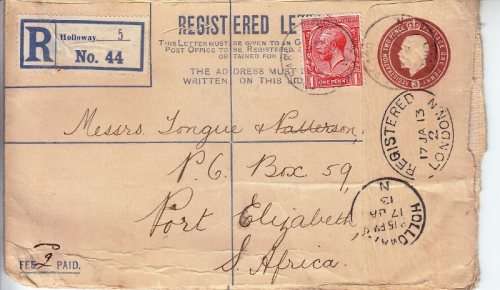 R
Holloway 5
No. 44
REGISTERED LETTER
THIS LETTER MUST BE GIVEN TO AN
POST OFFICE TO BE REGISTERED
OBTAINED FOR
THE ADDRESS MUST
WRITTEN ON THIS SIDE
ONE PENNY
Messrs Tongue & Patterson,
P.O. Box 59,
Port Elizabeth
S. Africa.
REGISTERED
17 JA 13
2
LONDON. N
HOLLOWAY
17 JA
13
N
FEE 2 PAID.